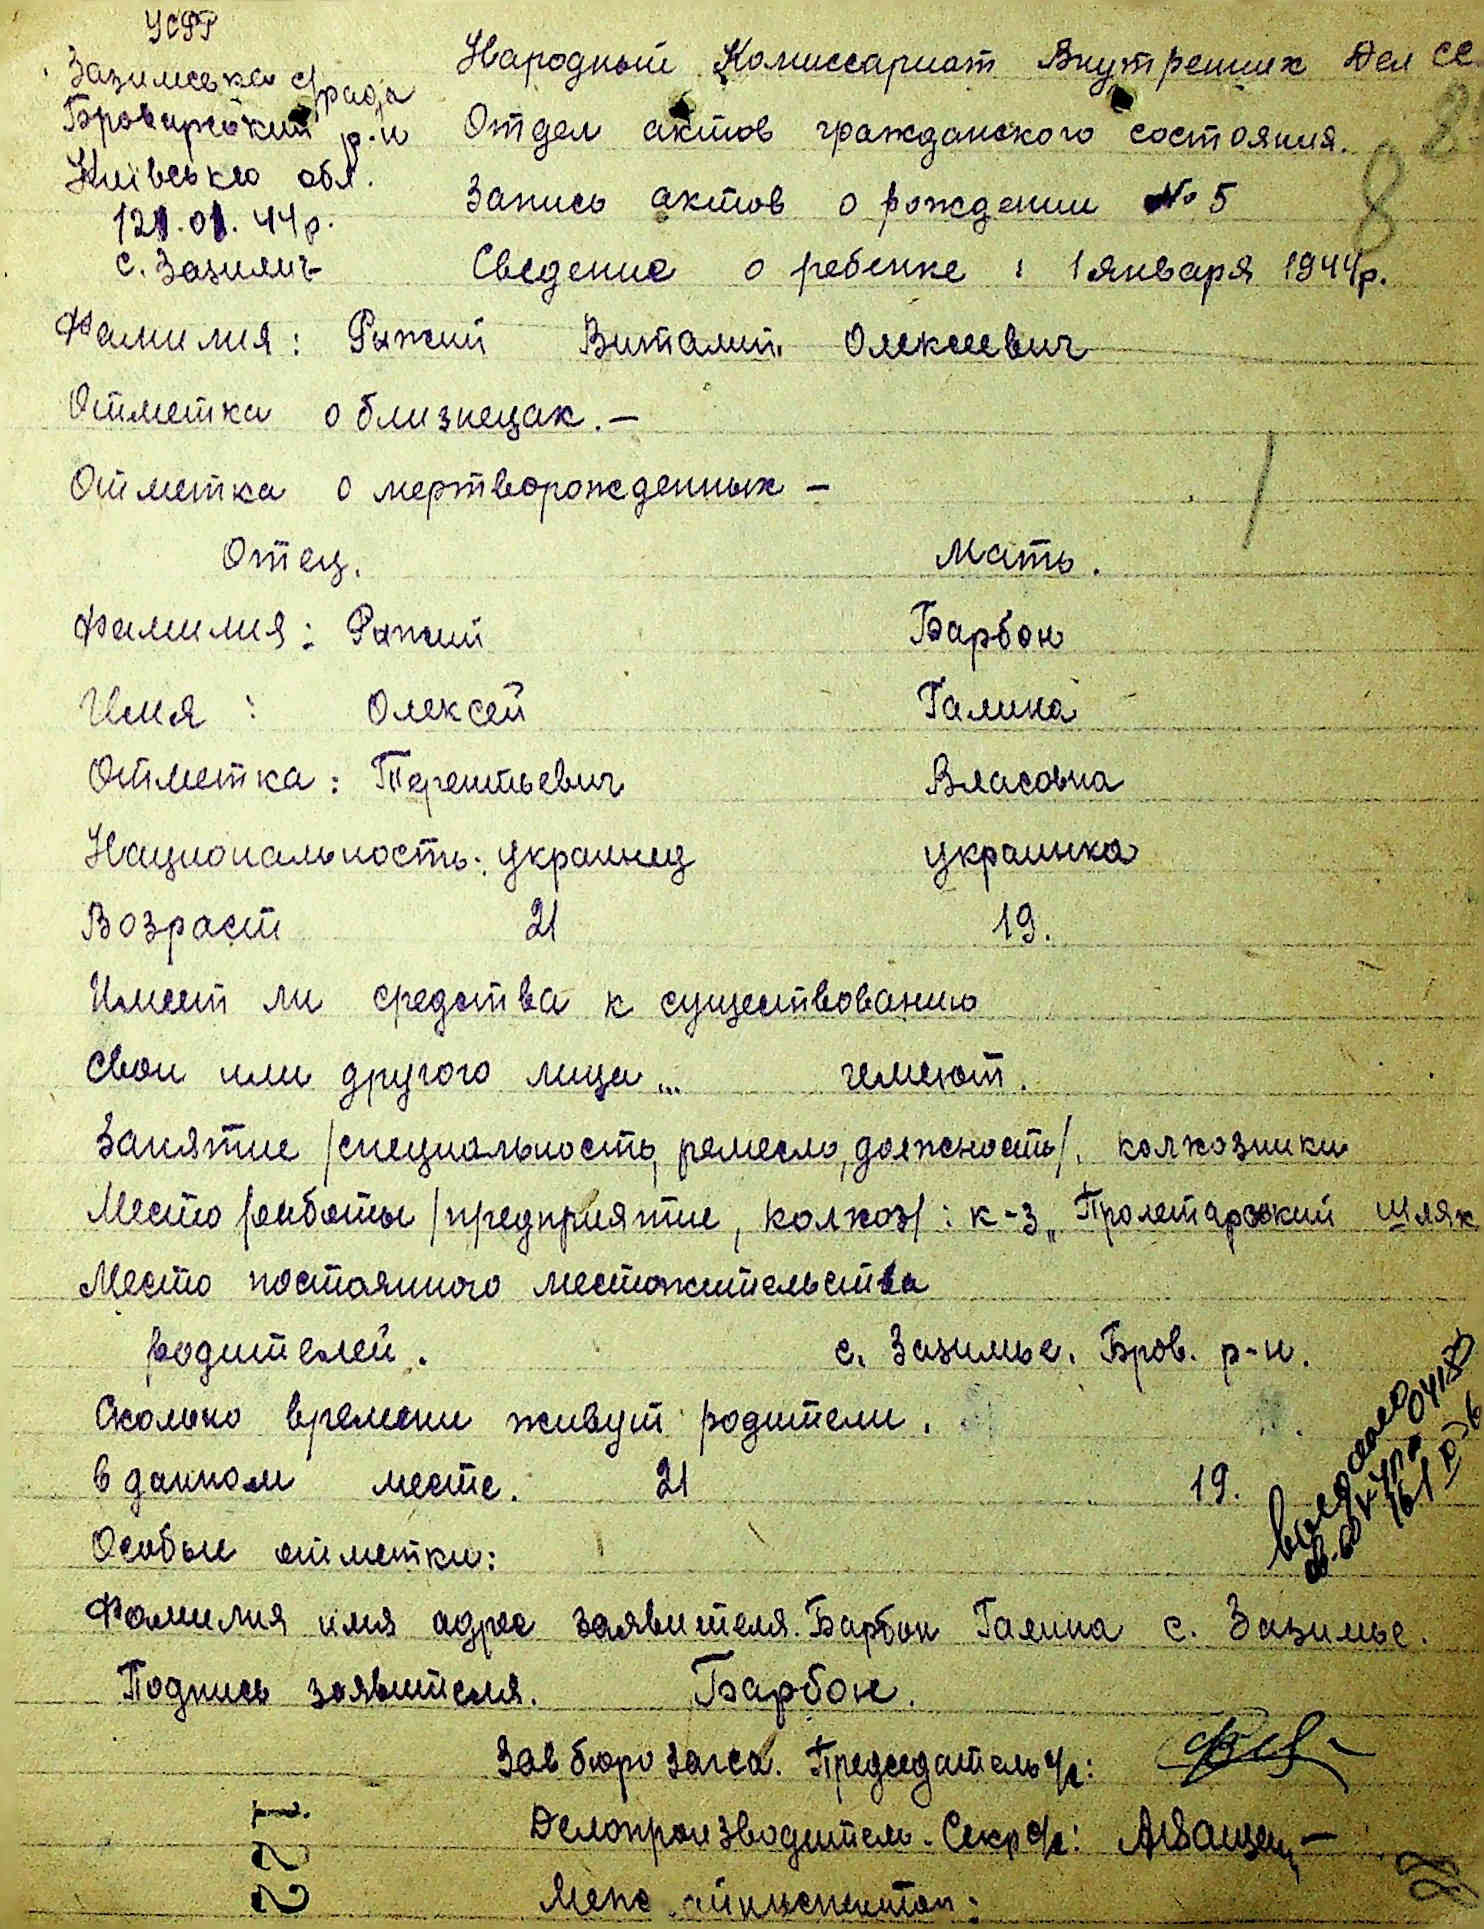 УСРР
Зазимська с/рада
Броварський р-н
Київсько обл.
121.01.44р.
с. Зазимьє
Народный Комиссариат Внутренних Дел СС
Отдел актов гражданского состояния.
8
8
Запись актов о рождении № 5
Сведение о ребенке : 1 января 1944р.
Фамилия : Рыжий Виталий Олексеевич
Отметка о близнецах. —
Отметка о мертворожденных —
Отец. Мать.
Фамилия : Рыжий Барбон
Имя : Олексей Галина
Отметка : Терентьевич Власовна
Национальность : украинец украинка
Возраст 21 19.
Имеет ли средства к существованию
свои или другого лица ... имеют.
Занятие /специальность, ремесло, должность/. колхозники
Место работы /предприятие, колхоз/ : к-з „Пролетарский шлях
Место постоянного местожительства
родителей. с. Зазимье. Бров. р-н.
Сколько времени живут родители.
в данном месте. 21 19.
Особые отметки:
Фамилия имя адрес заявителя. Барбон Галина с. Зазимье.
Подпись заявителя. Барбон.
Зав бюро загса. Председатель с/с:
Делопроизводитель. Секр с/с:
122